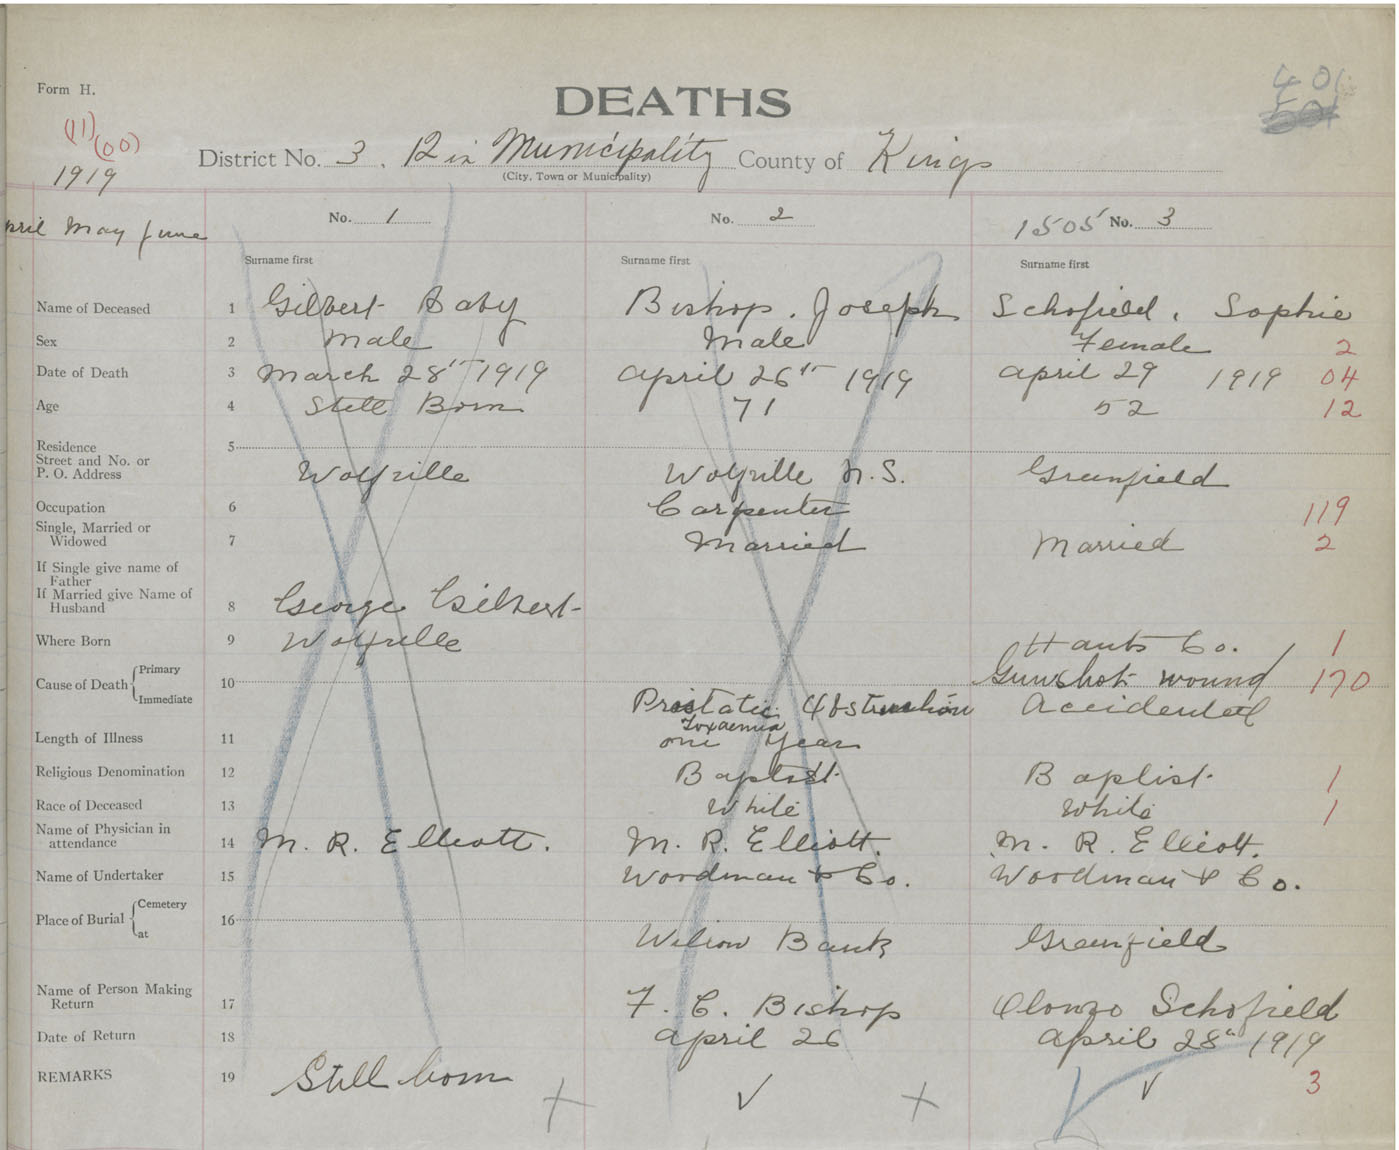 Form H.
DEATHS
401
501
(11)
(00)
1919
District No. 3. 12 in Municipality County of Kings
(City, Town or Municipality)
April May June
No. 1 No. 2 1505 No. 3
Surname first Surname first Surname first
Name of Deceased 1 Gilbert Baby Bishop. Joseph Schofield, Sophie
Sex 2 Male Male Female 2
Date of Death 3 March 28th 1919 April 26th 1919 April 29 1919 04
Age 4 Still Born 71 52 12
Residence 5
Street and No. or
P. O. Address Wolfville Wolfville N.S. Greenfield
Occupation 6 Carpenter 119
Single, Married or
Widowed 7 Married Married 2
If Single give name of
Father
If Married give Name of
Husband 8 George Gilbert
Where Born 9 Wolfville Hants Co. 1
Cause of Death Primary 10 Gunshot wound 170
Immediate Prostatic Obstruction Accidental
Toxaemia
Length of Illness 11 one Year
Religious Denomination 12 Baptist Baptist 1
Race of Deceased 13 White White 1
Name of Physician in
attendance 14 M. R. Elliott. M. R. Elliott. M. R. Elliott.
Name of Undertaker 15 Woodman & Co. Woodman & Co.
Place of Burial Cemetery 16
at Willow Bank Greenfield
Name of Person Making
Return 17 F. C. Bishop Alonzo Schofield
Date of Return 18 April 26 April 28th 1919
REMARKS 19 Still born 3